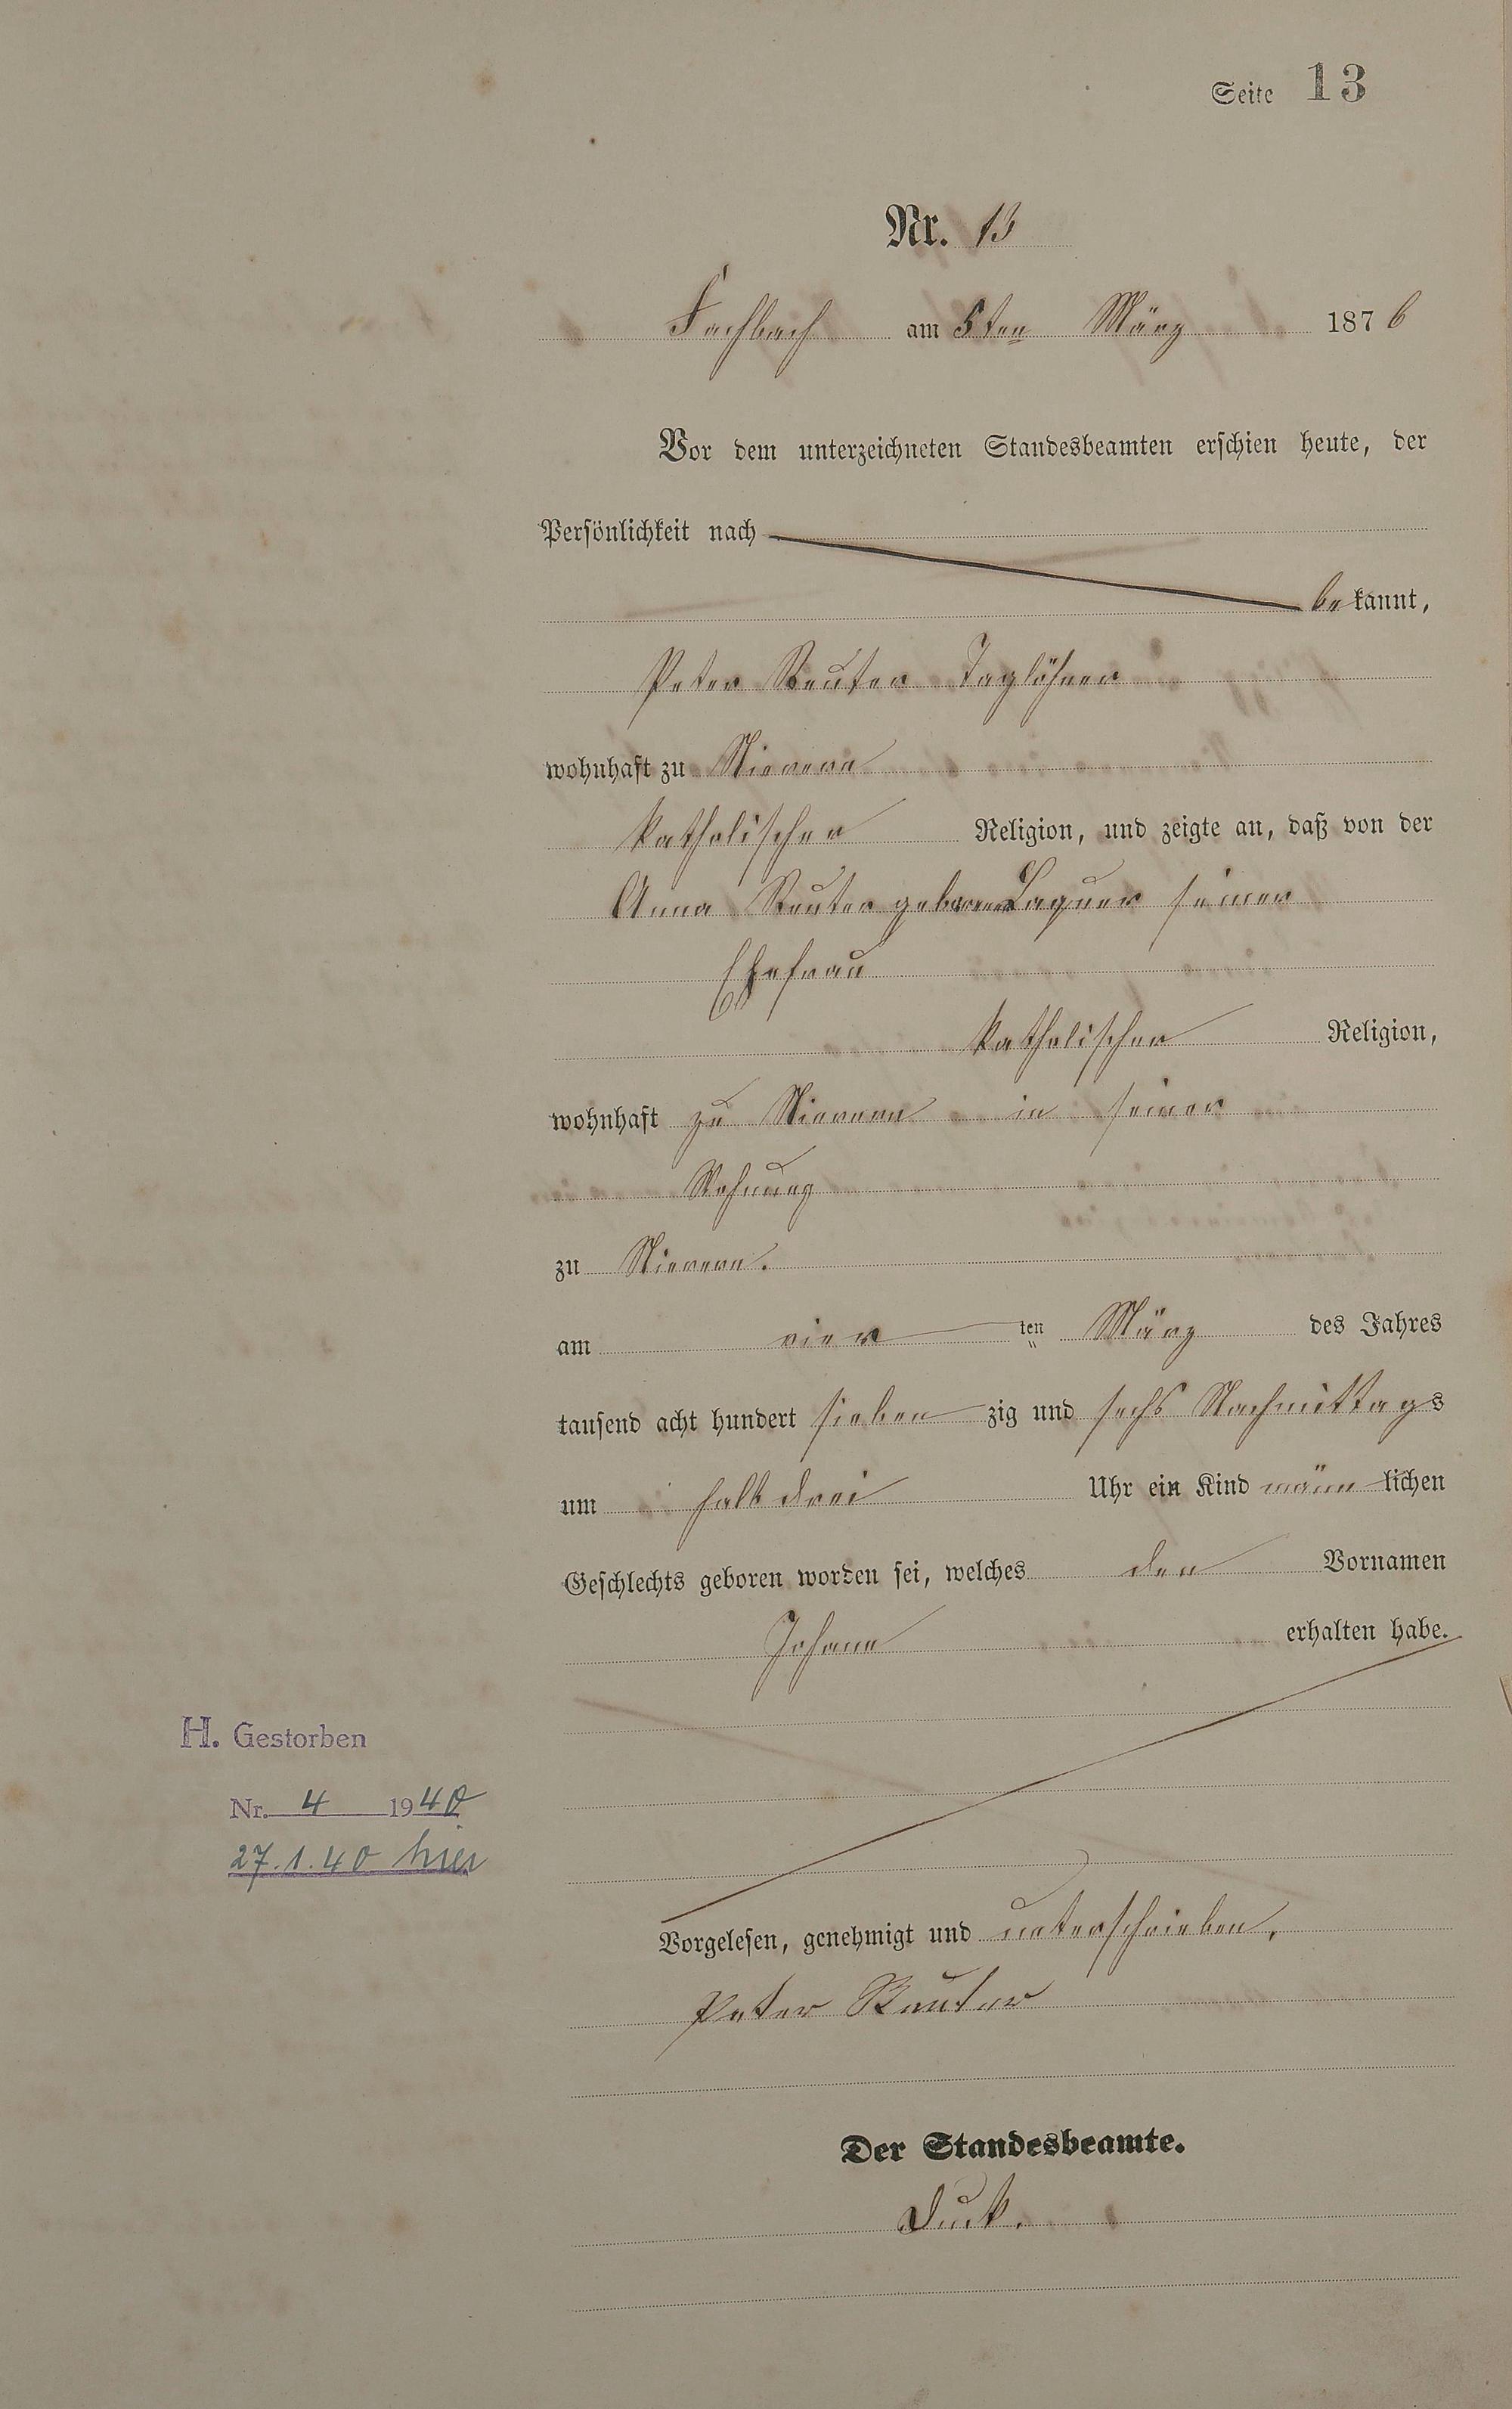 Seite 13
Nr. 13
Fachbach am 5ten März 1876
Vor dem unterzeichneten Standesbeamten erschien heute, der
Persönlichkeit nach
bekannt,
Peter Reuter Taglöhner
wohnhaft zu Nievern
katholischer Religion, und zeigte an, daß von der
Anna Reuter geborene Laquer seiner
Ehefrau
katholischer Religion,
wohnhaft zu Nievern in seiner
Wohnung
zu Nievern.
am vier ten März des Jahres
tausend acht hundert siebenzig und sechs Nachmittags
um halb drei Uhr ein Kind männlichen
Geschlechts geboren worden sei, welches den Vornamen
Johann erhalten habe.
H. Gestorben
Nr. 4 1940
27.1.40 hier
Vorgelesen, genehmigt und unterschrieben,
Peter Reuter
Der Standesbeamte.